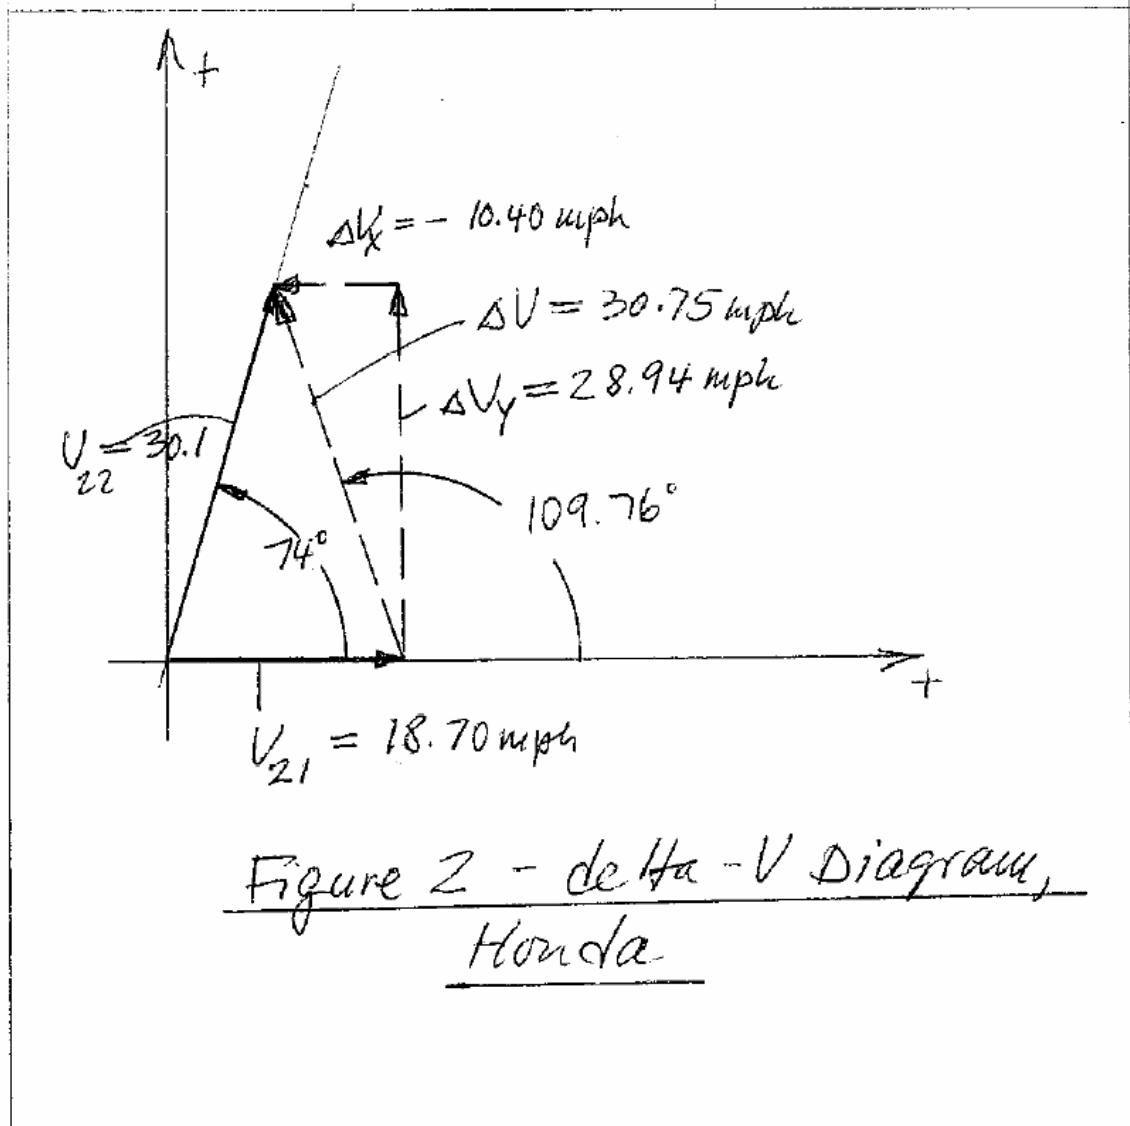 +
ΔV'x = - 10.40 mph
ΔV = 30.75 mph
ΔVy = 28.94 mph
V22 = 30.1
109.76°
74°
+
V21 = 18.70 mph
Figure 2 - delta-V Diagram,
Honda